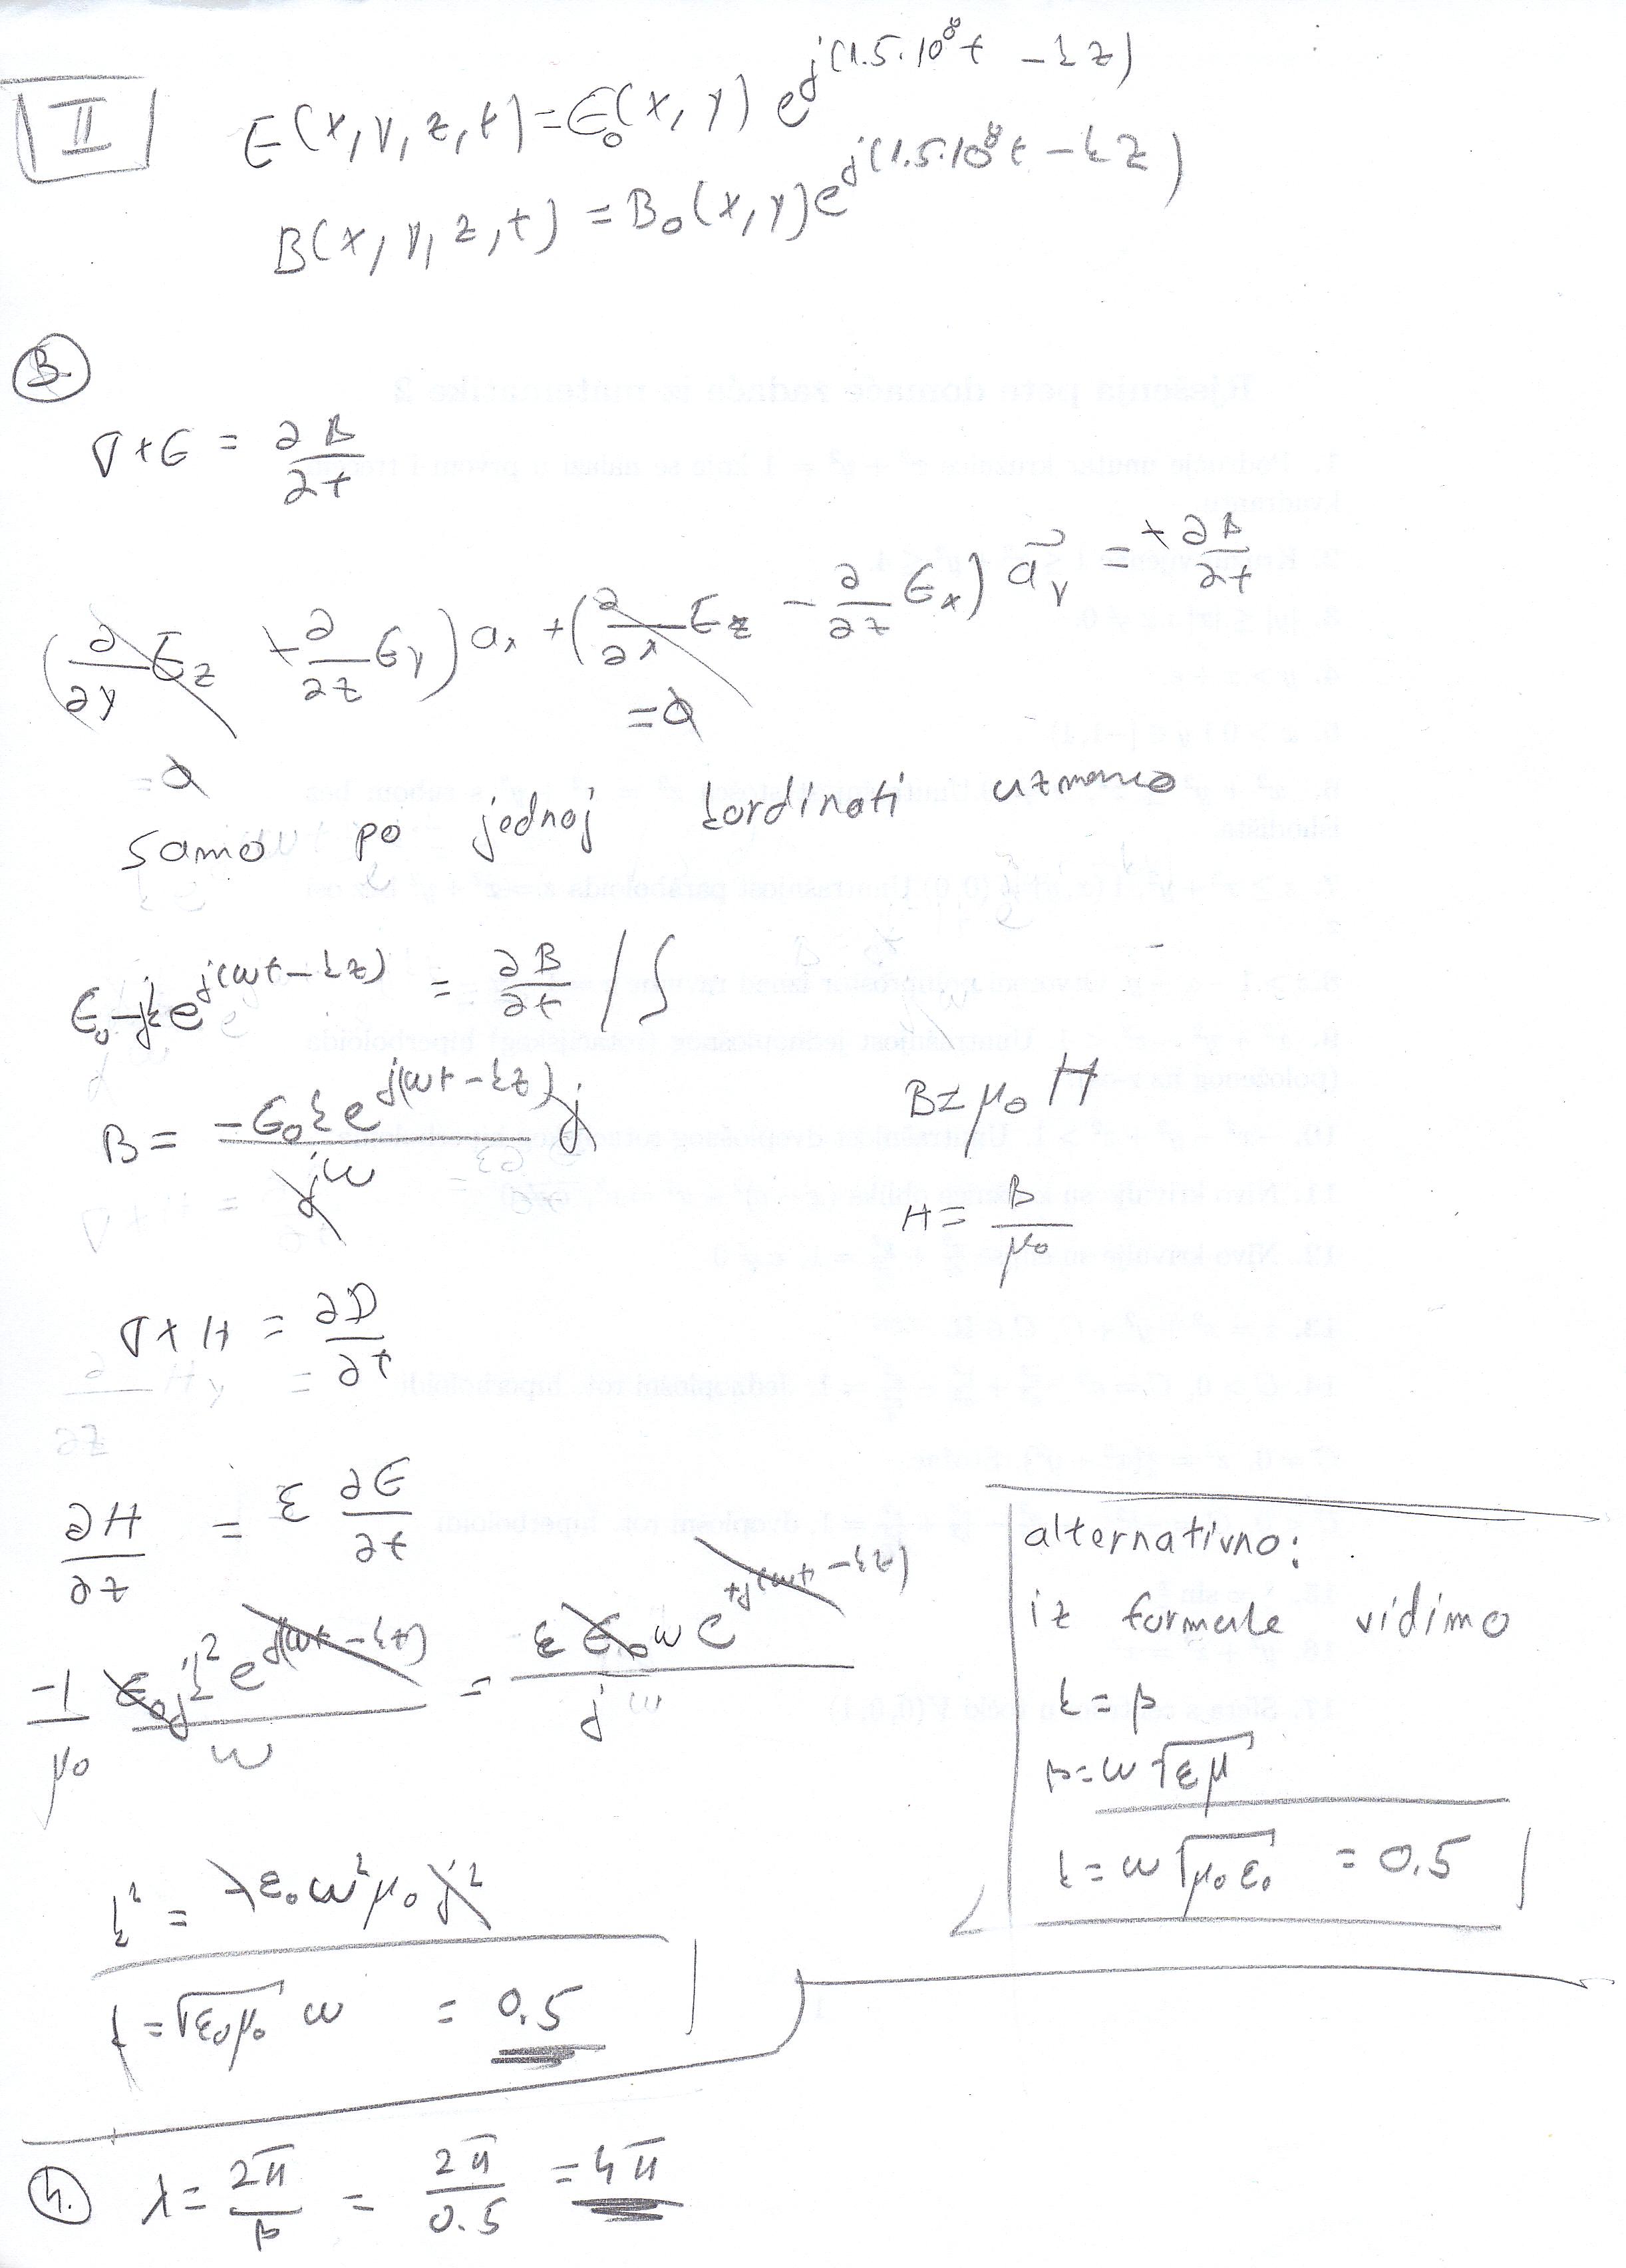 II
E(x,y,z,t)=E₀(x,y) e^{j(1.5·10⁸t -kz)}
B(x,y,z,t) = B₀(x,y) e^{j(1.5·10⁸t -kz)}
3.
∇×E = ∂B/∂t
(∂/∂y E_z + ∂/∂z E_y) a_x + (∂/∂x E_z - ∂/∂z E_x) a_y = + ∂B/∂t
=0 =0
samo po jednoj kordinati uzmemo
E₀ -jk e^{j(ωt-kz)} = ∂B/∂t /∫
B = -E₀ k e^{j(ωt-kz)} j / jω
B = μ₀ H
H = B/μ₀
∇×H = ∂D/∂t
∂H/∂z = ε ∂E/∂t
-1/μ₀ E₀ j k² e^{j(ωt-kz)} / ω = ε E₀ ω e^{+j(ωt-kz)} / j
k² = ε₀ ω² μ₀ j²
k = √ε₀μ₀ ω = 0.5
alternativno:
iz formule vidimo
k = β
β = ω √εμ
k = ω √μ₀ε₀ = 0.5
4. λ = 2π/β = 2π/0.5 = 4π